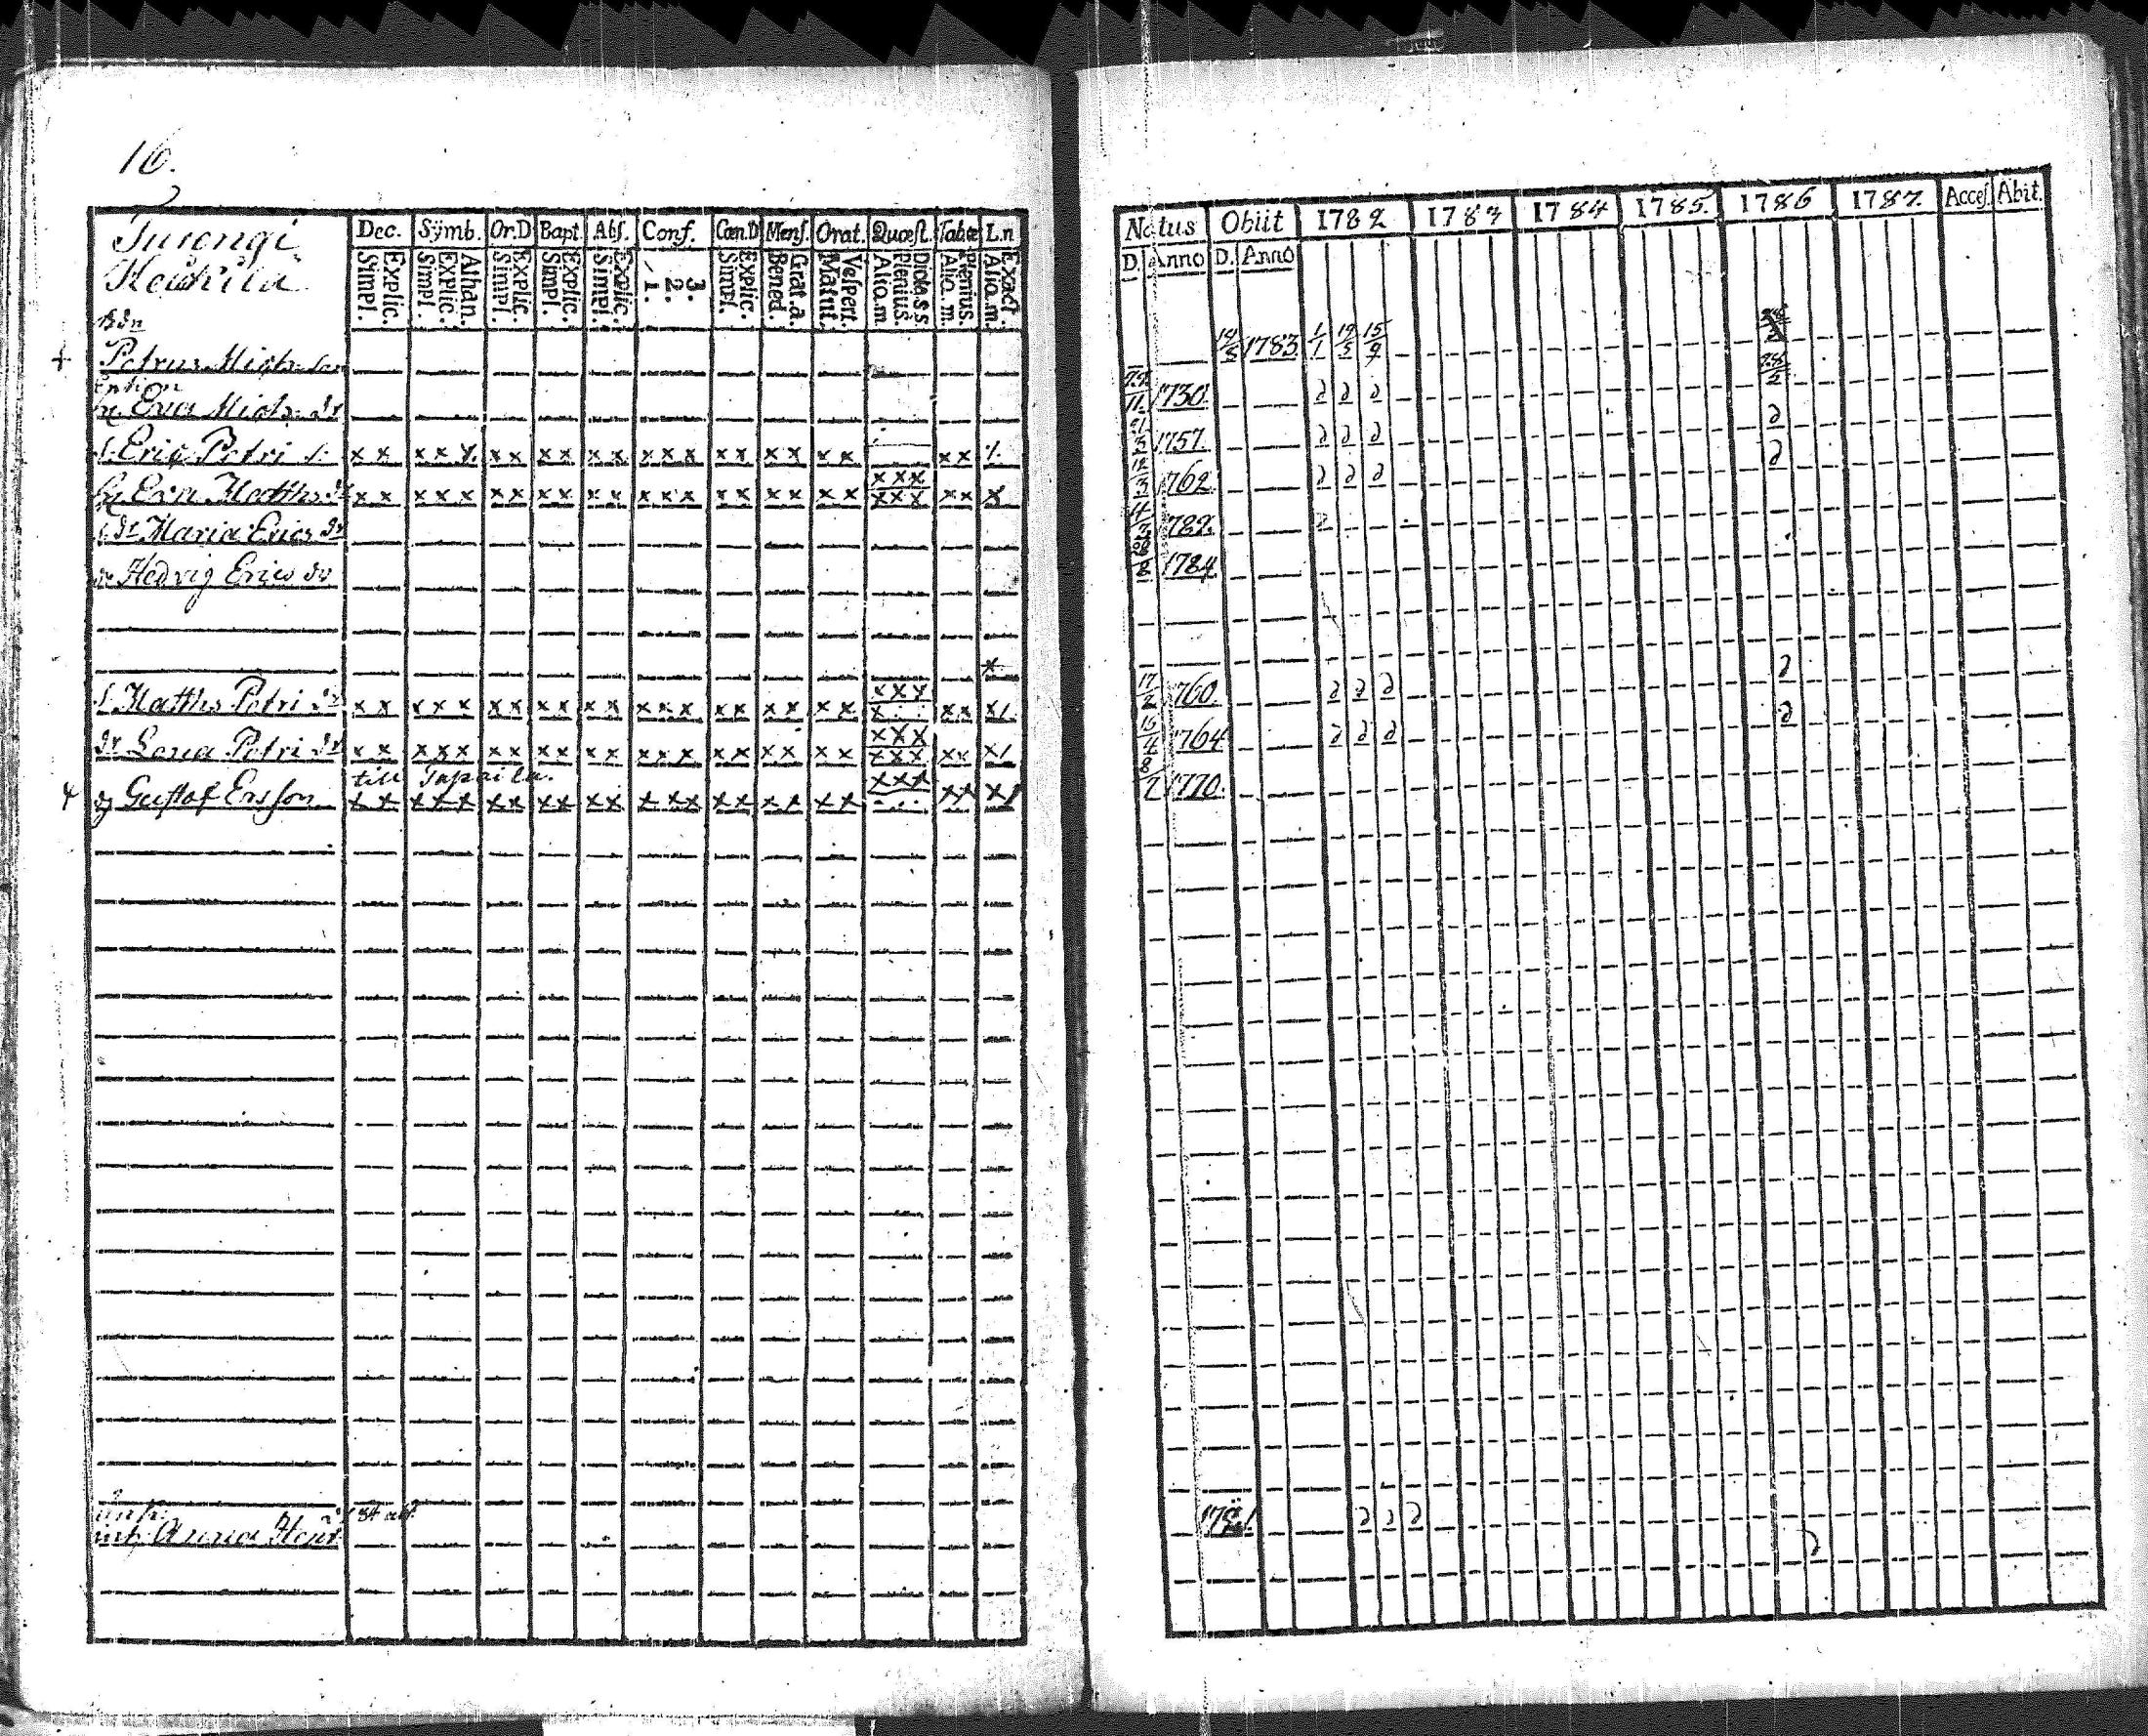 16.
Turengi
Heikkilä
Dec. Sÿmb. Or.D Bapt. Abs. Conf. Cœn.D Mens. Orat. Quæst. Tabæ L.n
Explic. Simpl. Athan. Explic. Simpl. Explic. Simpl. Explic. Simpl. Explic. Simpl. 3. 2. 1. Explic. Simpl. Grat.a. Bened. Vespert. Matut. Plenius. Alio.m Plenius. Alio.m. Exact. Alio.m.
Bdn
Petrus Michs. son
Enkian
h. Eva Michs. dr
s. Eric Petri s. x x x x x x x x x x x x x x x x x x x x x x
h. Eva Matths dr x x x x x x x x x x x x x x x x x x x x x x x x x x x x x
dr Maria Erics dr
dr Hedvig Erics dr
s. Matths Petri x x x x x x x x x x x x x x x x x x x x x x x x x x
dr Lena Petri dr x x x x x x x x x x x x x x x x x x x x x x x x x x x x
till
Gustaf Ersson x x x x x x x x x x x x x x x x x x x x x x x x x
Anna
Natus Obiit 1782 1783 1784 1785. 1786 1787. Acces. Abit.
D. Anno D. Anno
1783 1/1 19/5 15/9
1730. ∂ ∂ ∂
1757. ∂ ∂ ∂ ∂
1762. ∂ ∂ ∂ ∂
1782.
1784
17/2 1760. ∂ ∂ ∂ ∂
15/4 1764 ∂ ∂ ∂ ∂
1770.
∂ ∂ ∂